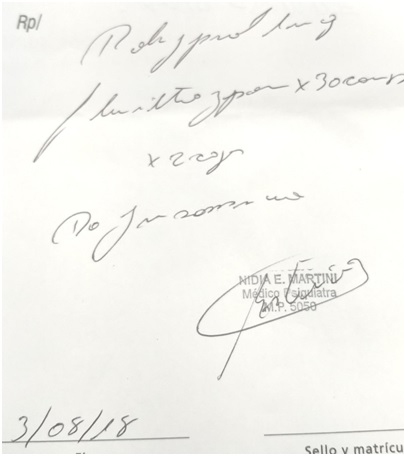 Rp/
Rohypnol 1 mg
flunitrazepam x 30 comp
x 2 cajas
D° Insomnio
NIDIA E. MARTINI
Médico Psiquiatra
M.P. 5050
3/08/18
Sello y matrícu